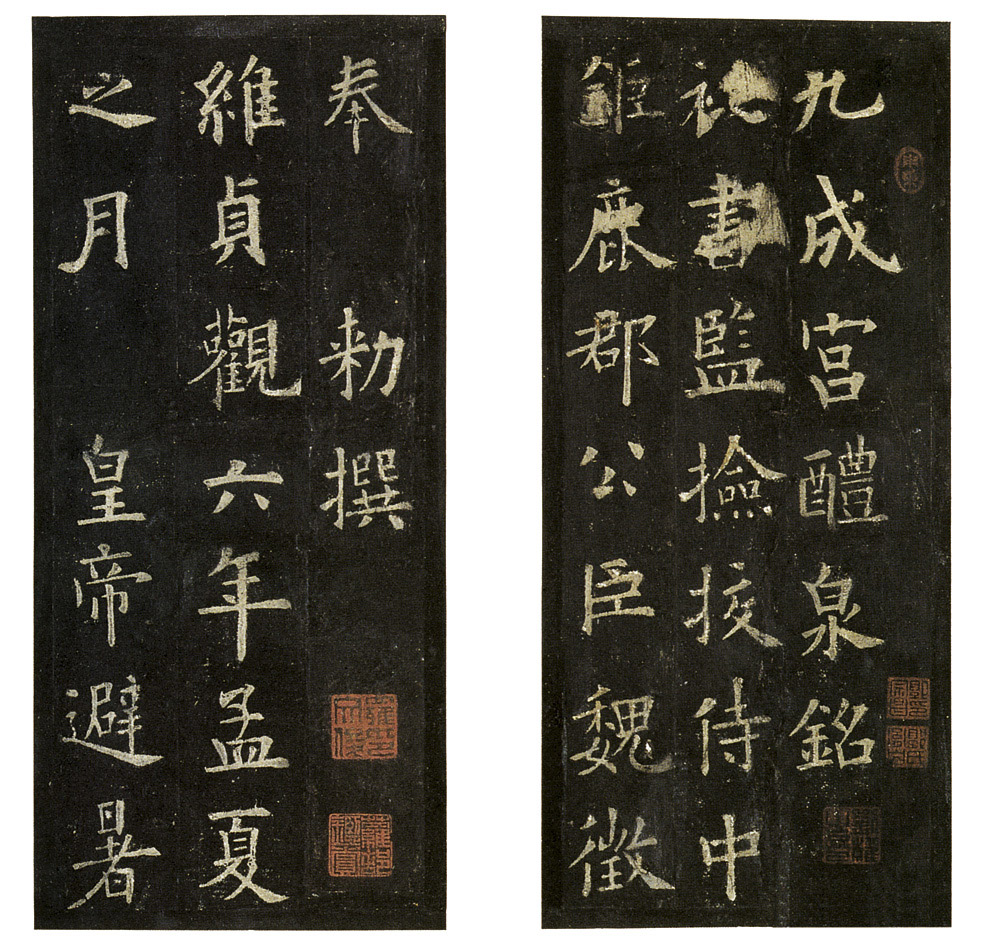 九成宮醴泉銘
祕書監撿挍侍中
鉅鹿郡公臣魏徵
奉 勅撰
維貞觀六年孟夏
之月 皇帝避暑